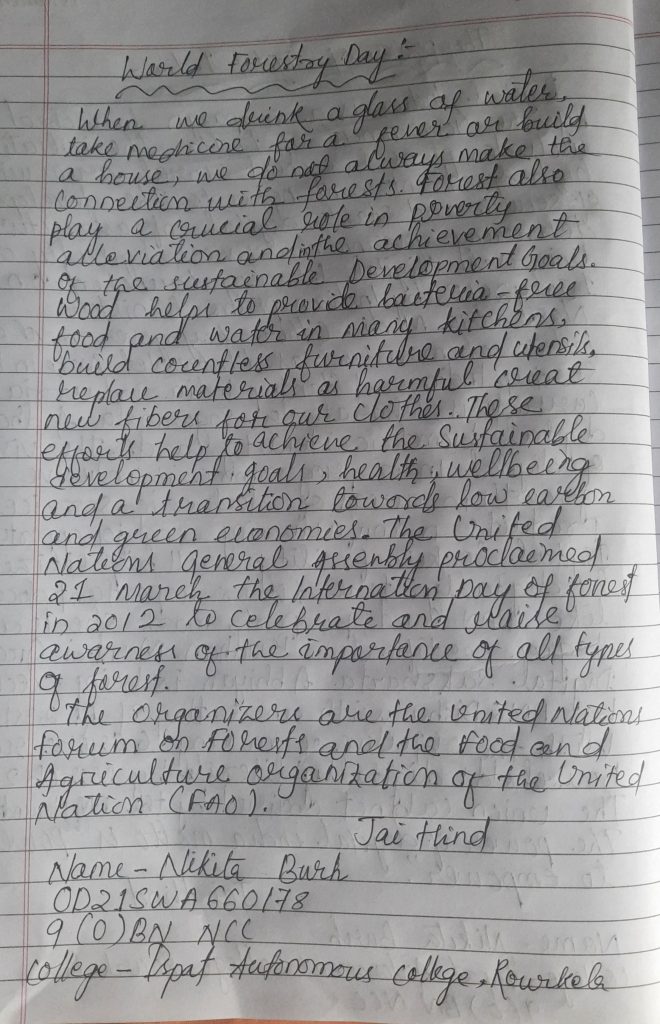 World Forestry Day :-
When we drink a glass of water,
take medicine for a fever or build
a house, we do not always make the
connection with forests. Forest also
play a crucial role in poverty
alleviation and in the achievement
of the sustainable Development Goals.
Wood helps to provide bacteria-free
food and water in many kitchens,
build countless furniture and utensils,
replace materials as harmful creat
new fibers for our clothes. These
efforts help to achieve the Sustainable
development goals, health, wellbeing
and a transition towords low carbon
and green economies. The United
Nations General Assembly proclaimed
21 March the Internation Day of forest
in 2012 to celebrate and raise
awarness of the importance of all types
of forest.
The organizers are the United Nations
forum on forests and the Food and
Agriculture organization of the United
Nation (FAO).
Jai Hind
Name - Nikita Burh
OD21SWA660178
9 (O) BN NCC
College - Ispat Autonomous college, Rourkela